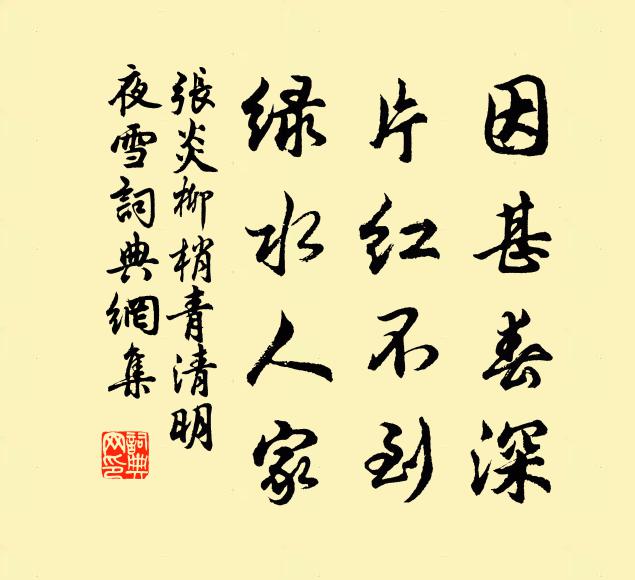 因甚春深
片红不到
绿水人家
張炎柳梢青清明
夜雪詞典網集
詞典网印